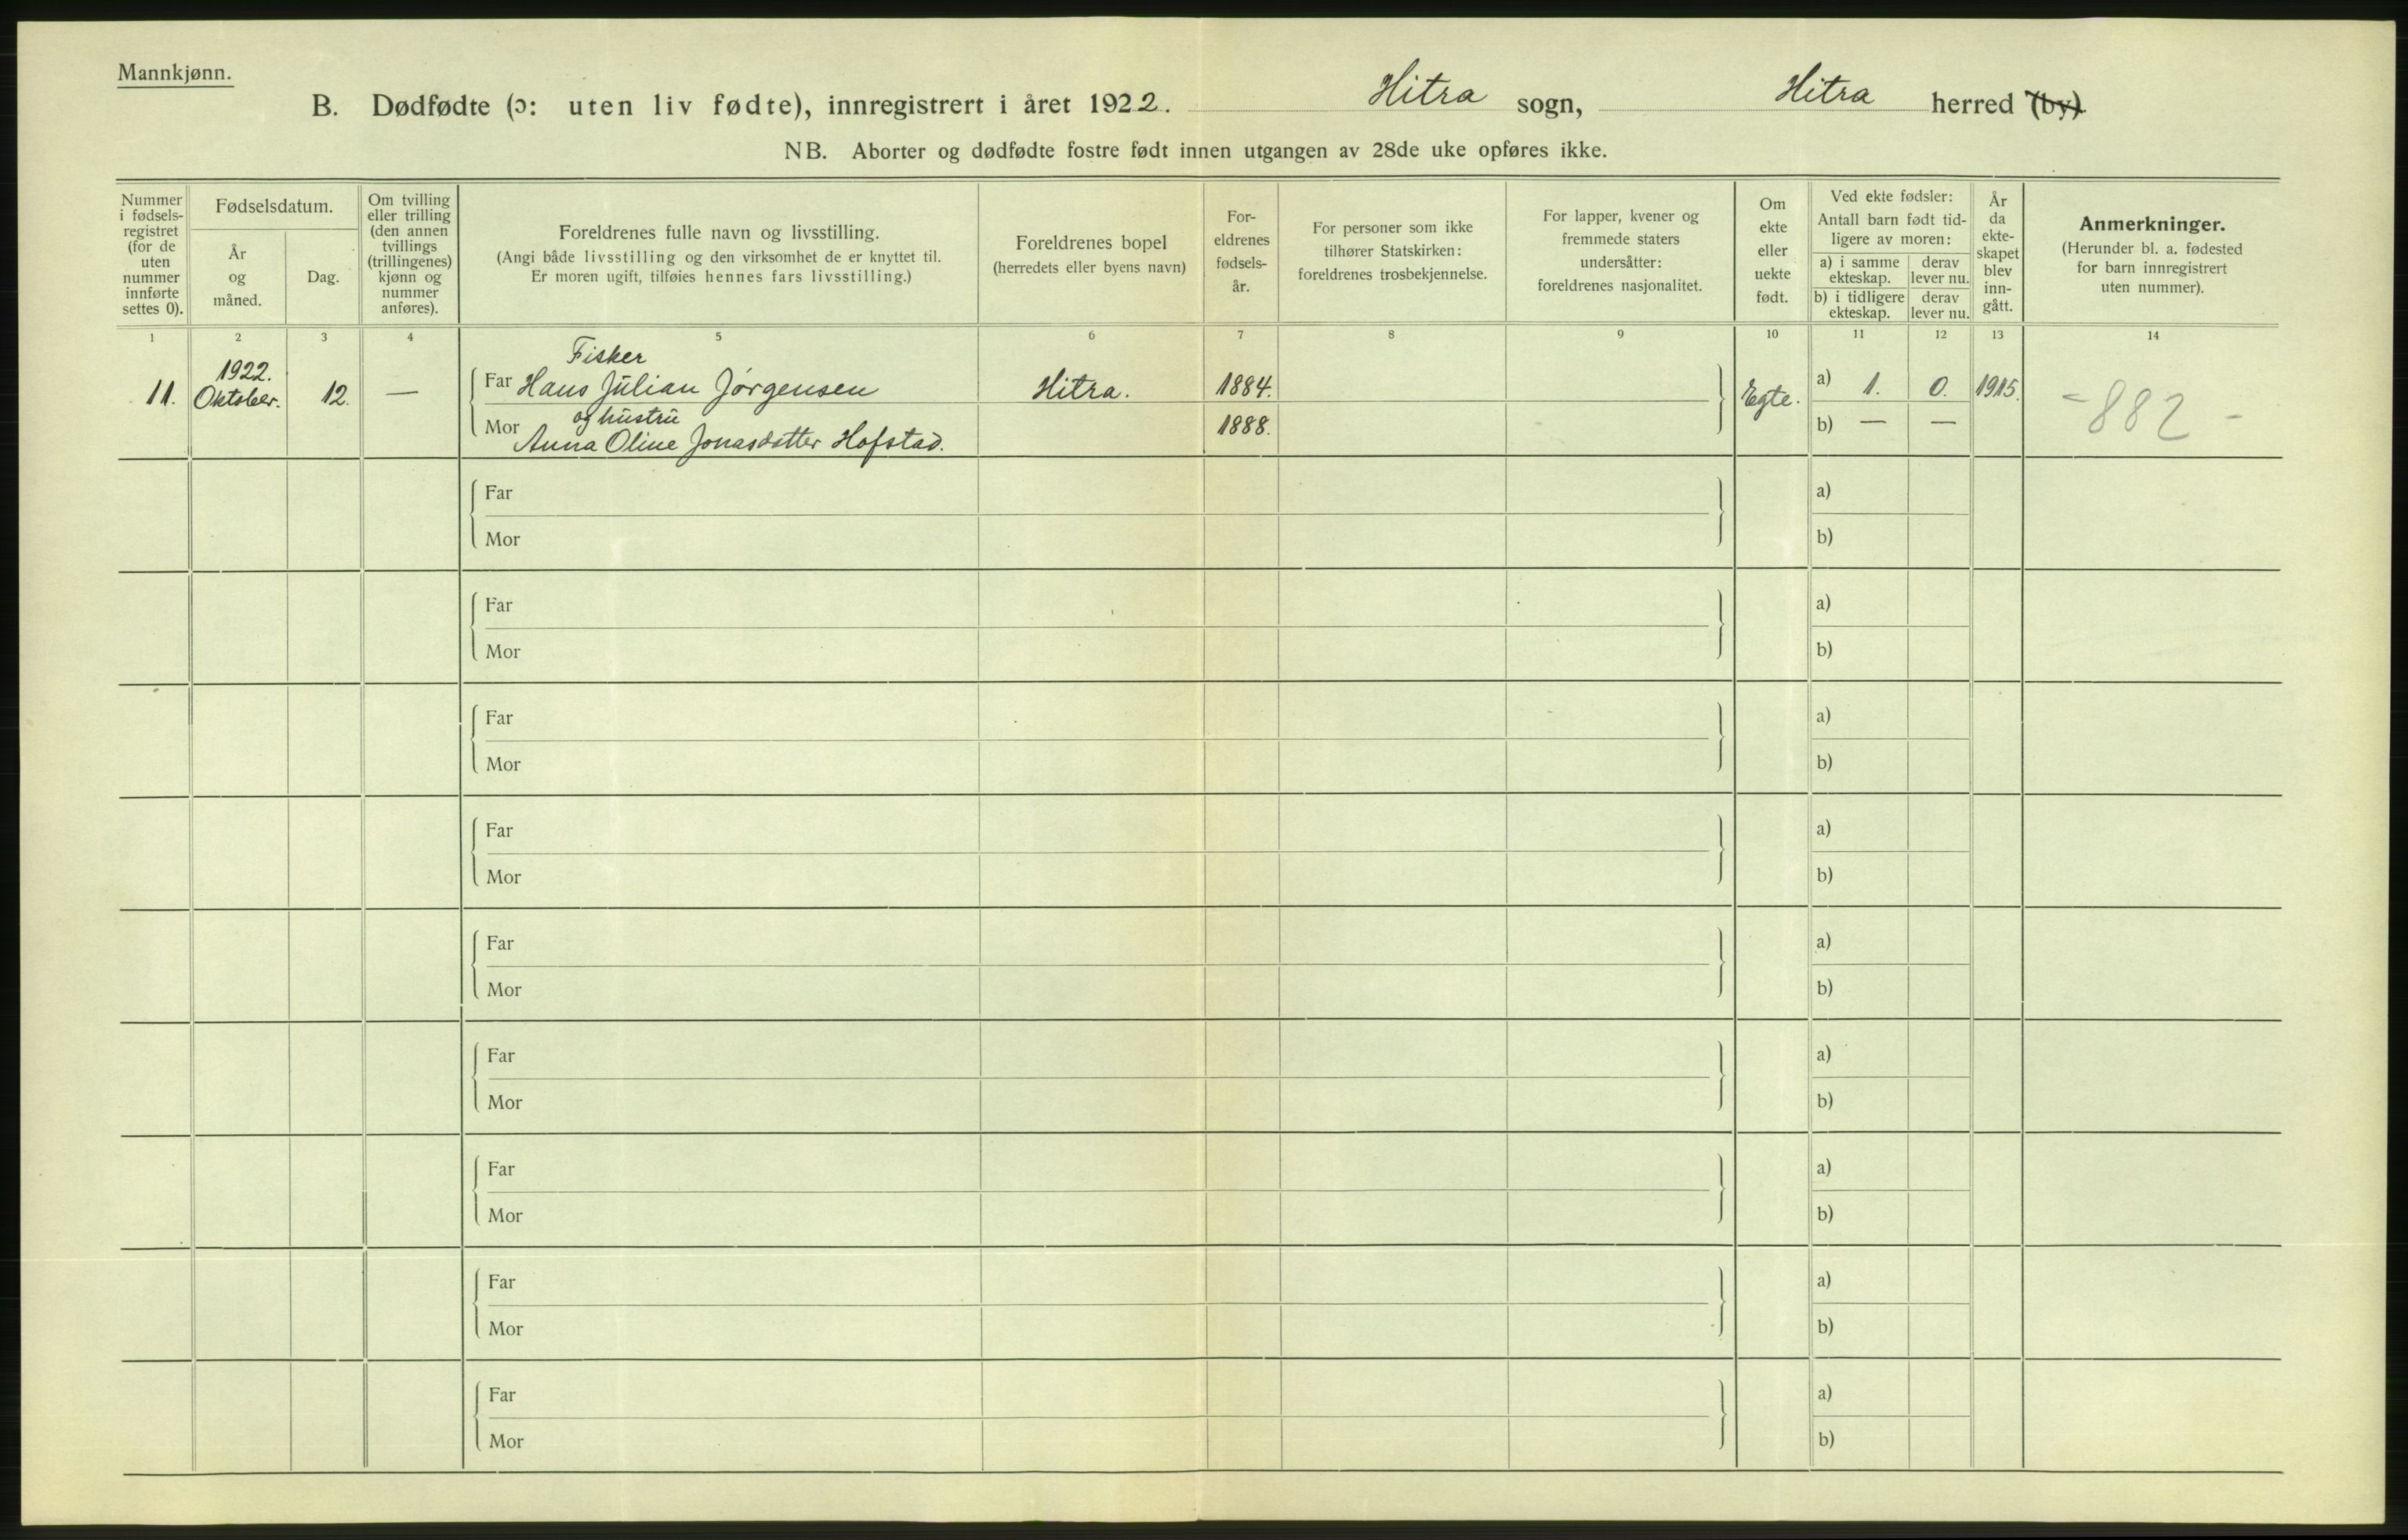 Mannkjønn.
B. Dødfødte (ɔ: uten liv fødte), innregistrert i året 1922. Hitra sogn, Hitra herred (by)
NB. Aborter og dødfødte fostre født innen utgangen av 28de uke opføres ikke.
Nummer
i fødsels-
registret
(for de
uten
nummer
innførte
settes 0).
Fødselsdatum.
År
og
måned.
Dag.
Om tvilling
eller trilling
(den annen
tvillings
(trillingenes)
kjønn og
nummer
anføres).
Foreldrenes fulle navn og livsstilling.
(Angi både livsstilling og den virksomhet de er knyttet til.
Er moren ugift, tilføies hennes fars livsstilling.)
Foreldrenes bopel
(herredets eller byens navn)
For-
eldrenes
fødsels-
år.
For personer som ikke
tilhører Statskirken:
foreldrenes trosbekjennelse.
For lapper, kvener og
fremmede staters
undersåtter:
foreldrenes nasjonalitet.
Om
ekte
eller
uekte
født.
Ved ekte fødsler:
Antall barn født tid-
ligere av moren:
a) i samme
ekteskap.
derav
lever nu.
b) i tidligere
ekteskap.
derav
lever nu.
År
da
ekte-
skapet
blev
inn-
gått.
Anmerkninger.
(Herunder bl. a. fødested
for barn innregistrert
uten nummer).
1 2 3 4 5 6 7 8 9 10 11 12 13 14
Fisker
11. 1922. Oktober. 12. — Far Hans Julian Jørgensen Hitra. 1884. Egte. a) 1. 0. 1915. -882-
og hustru
Mor Anna Oline Jonasdatter Hofstad. 1888. b) — —
Far a)
Mor b)
Far a)
Mor b)
Far a)
Mor b)
Far a)
Mor b)
Far a)
Mor b)
Far a)
Mor b)
Far a)
Mor b)
Far a)
Mor b)
Far a)
Mor b)